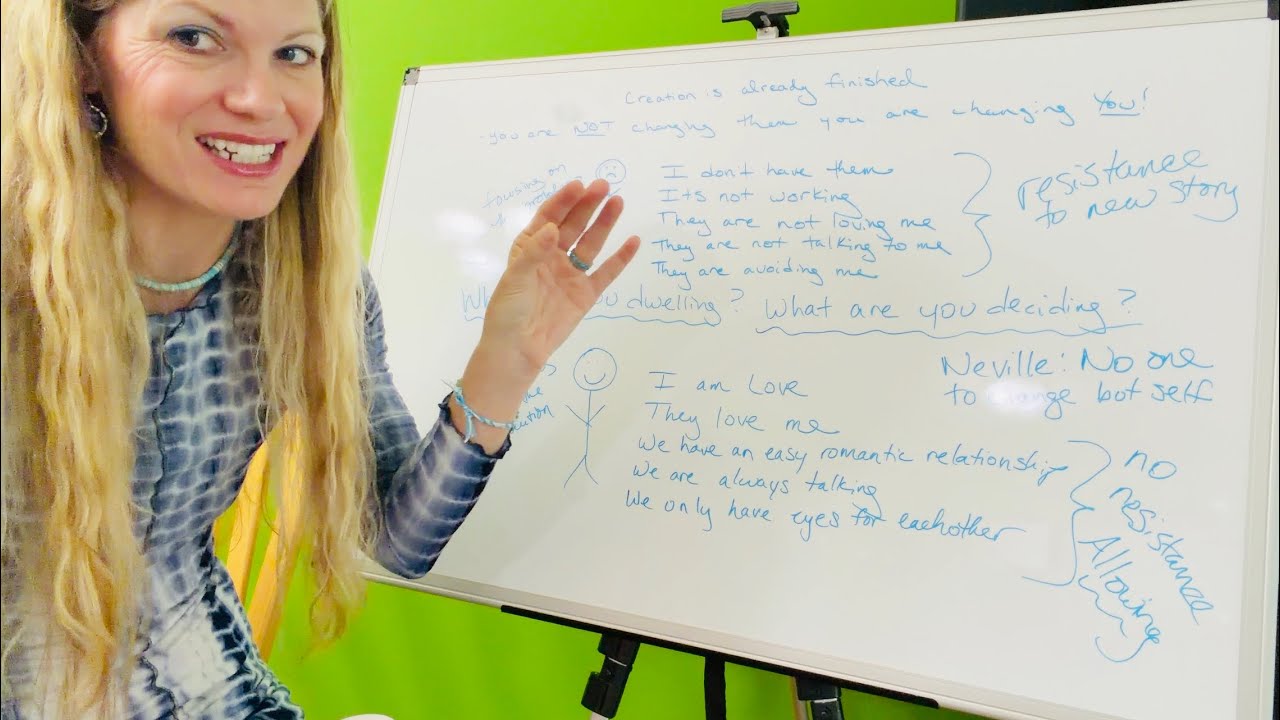 Creation is already finished
- you are NOT changing them you are changing YOU!
focusing on
I don't have them
Its not working
They are not loving me
They are not talking to me
They are avoiding me
resistance
to new story
you dwelling? What are you deciding?
Neville: No one
to change bot self
I am Love
They love me
We have an easy romantic relationship
We are always talking
We only have eyes for eachother
no
resistance
Allowing